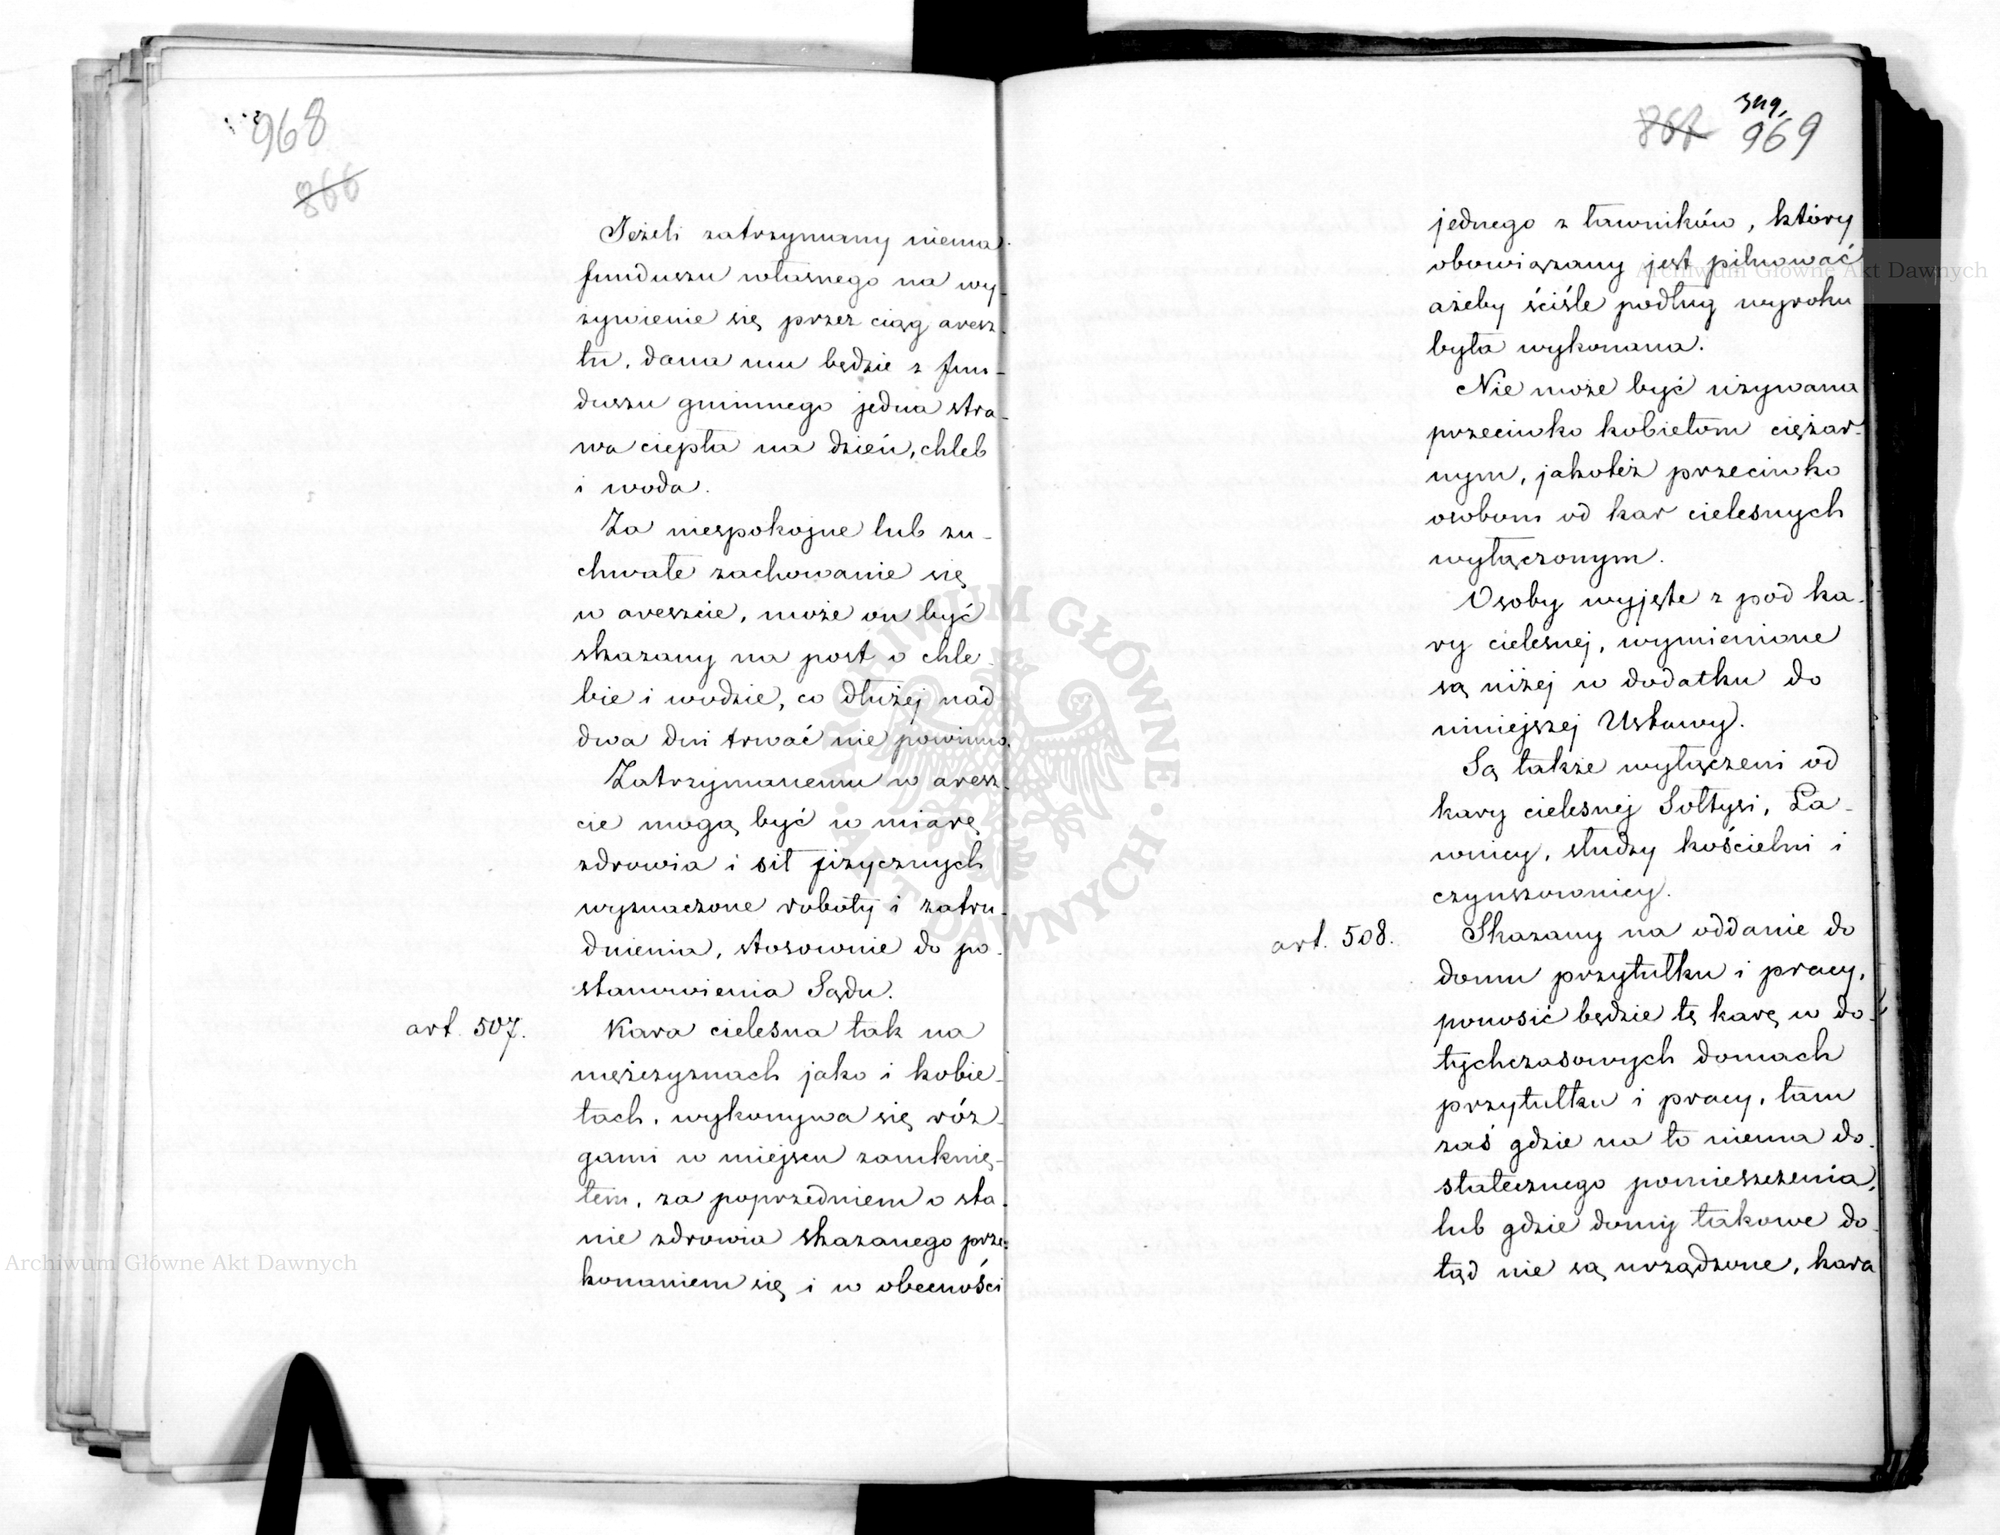 968
866
Jeżeli zatrzymany niema
funduszu własnego na wy-
żywienie się przez ciąg aresz-
tu, dana mu będzie z fun-
duszu gminnego jedna stra-
wa ciepła na dzień, chleb
i woda.
Za niespokojne lub zu-
chwałe zachowanie się
w areszcie, może on być
skazany na post o chle-
bie i wodzie, co dłużej nad
dwa dni trwać nie powinno.
Zatrzymanemu w aresz-
cie mogą być w miarę
zdrowia i sił fizycznych
wyznaczone roboty i zatru-
dnienia, stosownie do po-
stanowienia Sądu.
art. 507.
Kara cielesna tak na
mężczyznach jako i kobie-
tach, wykonywa się róz-
gami w miejscu zamknię-
tem, za poprzedniem o sta-
nie zdrowia skazanego prze-
konaniem się i w obecności
349.
867 969
jednego z ławników, który
obowiązany jest pilnować
ażeby ściśle podług wyroku
była wykonana.
Nie może być używana
przeciwko kobietom ciężar-
nym, jakoteż przeciwko
osobom od kar cielesnych
wyłączonym.
Osoby wyjęte z pod ka-
ry cielesnej, wymienione
są niżej w dodatku do
niniejszej Ustawy.
Są także wyłączeni od
kary cielesnej Sołtysi, Ła-
wnicy, słudzy kościelni i
czynszownicy.
art. 508.
Skazany na oddanie do
domu przytułku i pracy,
ponosić będzie tę karę w do-
tychczasowych domach
przytułku i pracy, tam
zaś gdzie na to niema do-
statecznego pomieszczenia,
lub gdzie domy takowe do-
tąd nie są urządzone, kara
Archiwum Główne Akt Dawnych
Archiwum Główne Akt Dawnych
ARCHIWUM GŁÓWNE AKT DAWNYCH